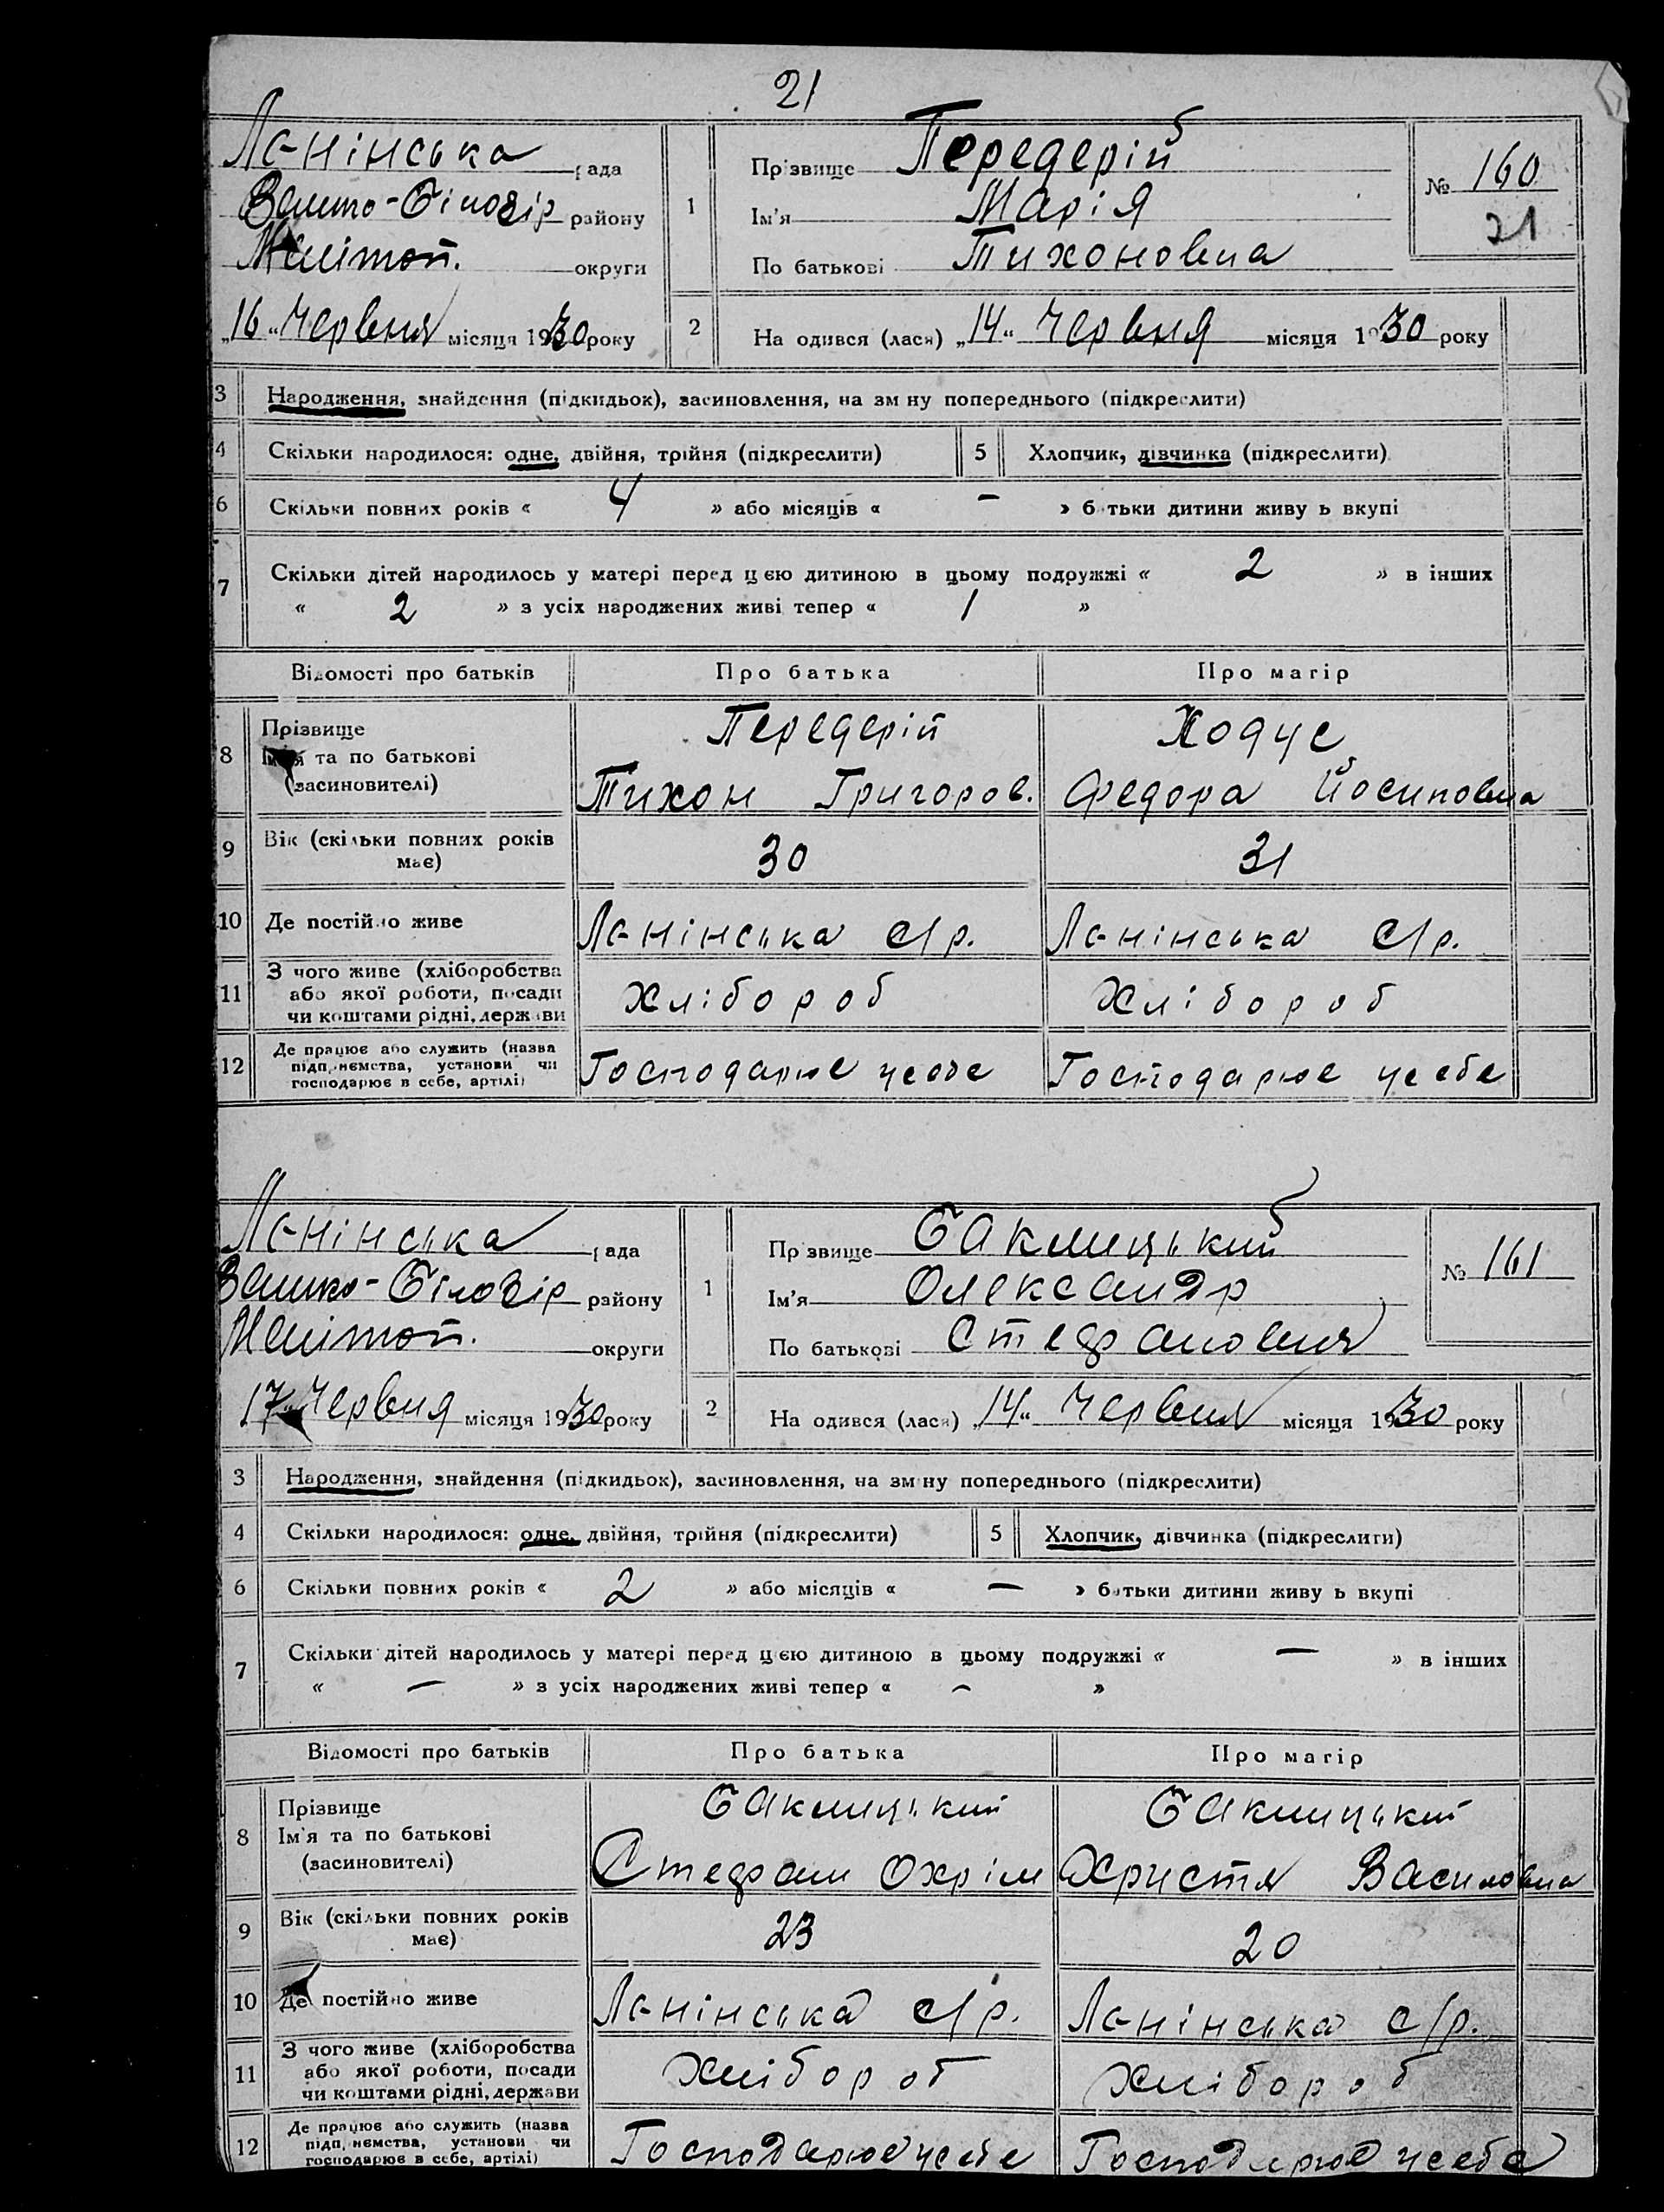 21
Ленінська рада
Велико-Білозір району
Мелітоп. округи
„16“ Червня місяця 1930 року
1
Прізвище Передерій
Ім'я Марія
По батькові Тихоновна
№ 160
21
2 На одився (лася) „14“ Червня місяця 1930 року
3 Народження, знайдення (підкидьок), засиновлення, на зм ну попереднього (підкреслити)
4 Скільки народилося: одне, двійня, трійня (підкреслити) 5 Хлопчик, дівчинка (підкреслити)
6 Скільки повних років « 4 » або місяців « – » б тьки дитини живу ь вкупі
7 Скільки дітей народилось у матері перед цією дитиною в цьому подружжі « 2 » в інших
« 2 » з усіх народжених живі тепер « 1 »
Відомості про батьків Про батька Про матір
8 Прізвище Передерій Ходус
Ім'я та по батькові
(засиновителі) Тихон Григоров. Федора Йосиповна
9 Вік (скільки повних років
має) 30 31
10 Де постійно живе Ленінська с/р. Ленінська с/р.
11 З чого живе (хліборобства
або якої роботи, посади
чи коштами рідні, держави Хлібороб Хлібороб
12 Де працює або служить (назва
підп, иємства, установи чи
господарює в себе, артілі) Господарює усебе Господарює усебе
Ленінська рада
Велико-Білозір району
Мелітоп. округи
17 Червня місяця 1930 року
1
Пр звище Баклицький
Ім'я Олександр
По батькові Стефановия
№ 161
2 На одився (лася) „14“ Червня місяця 1930 року
3 Народження, знайдення (підкидьок), засиновлення, на зм ну попереднього (підкреслити)
4 Скільки народилося: одне, двійня, трійня (підкреслити) 5 Хлопчик, дівчинка (підкреслити)
6 Скільки повних років « 2 » або місяців « – » батьки дитини живу ь вкупі
7 Скільки дітей народилось у матері перед цією дитиною в цьому подружжі « – » в інших
« – » з усіх народжених живі тепер « – »
Відомості про батьків Про батька Про матір
8 Прізвище Баклицький Баклицький
Ім'я та по батькові
(засиновителі) Стефан Охрім Христя Василовна
9 Вік (скільки повних років
має) 23 20
10 Де постійно живе Ленінська с/р. Ленінська с/р.
11 З чого живе (хліборобства
або якої роботи, посади
чи коштами рідні, держави Хлібороб Хлібороб
12 Де працює або служить (назва
підп, иємства, установи чи
господарює в себе, артілі) Господарює усебе Господарює усебе